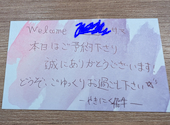 Welcome
本日はご予約下さり
誠にありがとうございます!
どうぞ、ごゆっくりお過ごし下さい